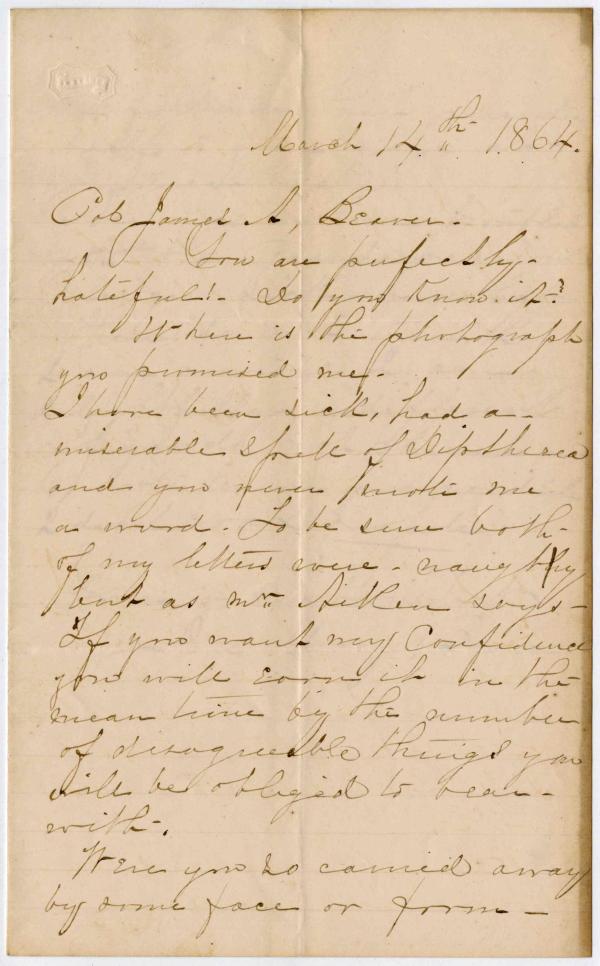 March 14th 1864.
Col James A, Beaver.
You are perfectly-
hateful!- Do you know it-?
Where is the photograph
you promised me-
I have been sick, had a-
miserable spell of Diptherea
and you never wrote me
a word- To be sure both-
of my letters were- naughty
but as Mrs Aiken says-
"If you want my Confidence
you will earn it in the-
mean time by the number
of disagreeable things you
will be obliged to bear-
with-.
Were you so carried away
by some face or form-